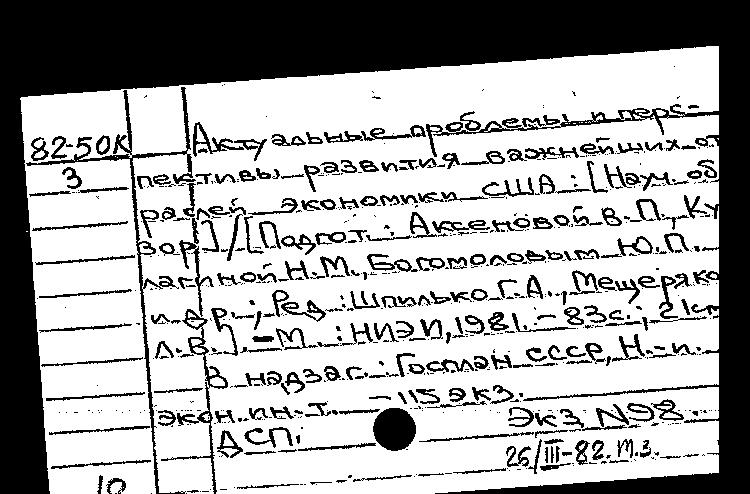 82-50К
3
Актуальные проблемы и перс-
пективы развития важнейших от
раслей экономики США : [Науч. об
зор] / [Подгот. : Аксеновой В. П., Ку
лагиной Н. М., Богомоловым Ю. П.
и др. ; Ред : Шпилько Г. А., Мещеряко
Л. В.]. - М. : НИЭИ, 1981. - 83 с. ; 21 см
В надзаг. : Госплан СССР, Н.-и.
экон. ин-т. - 115 экз.
ДСП.
Экз N98.
26/III-82. м.з.
10